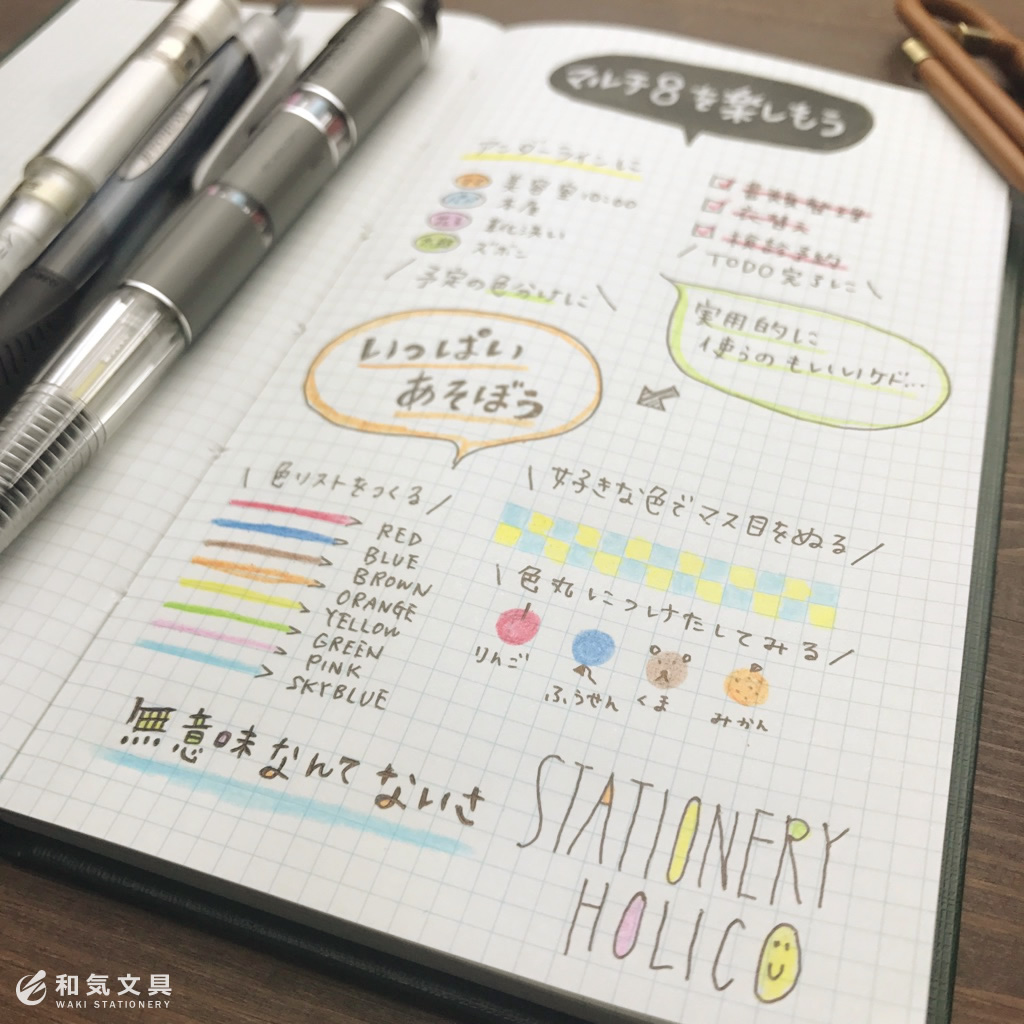 マルチ8を楽しもう
アンダーラインに
美容室 10:00
本屋
靴洗い
ズボン
予定の色分けに
TODO完了に
実用的に
使うのもいいけど…
いっぱい
あそぼう
色リストをつくる
RED
BLUE
BROWN
ORANGE
YELLOW
GREEN
PINK
SKYBLUE
好きな色でマス目をぬる
色丸につけたしてみる
りんご
ふうせん
くま
みかん
無意味なんてないさ
STATIONERY
HOLIC
和気文具
WAKI STATIONERY